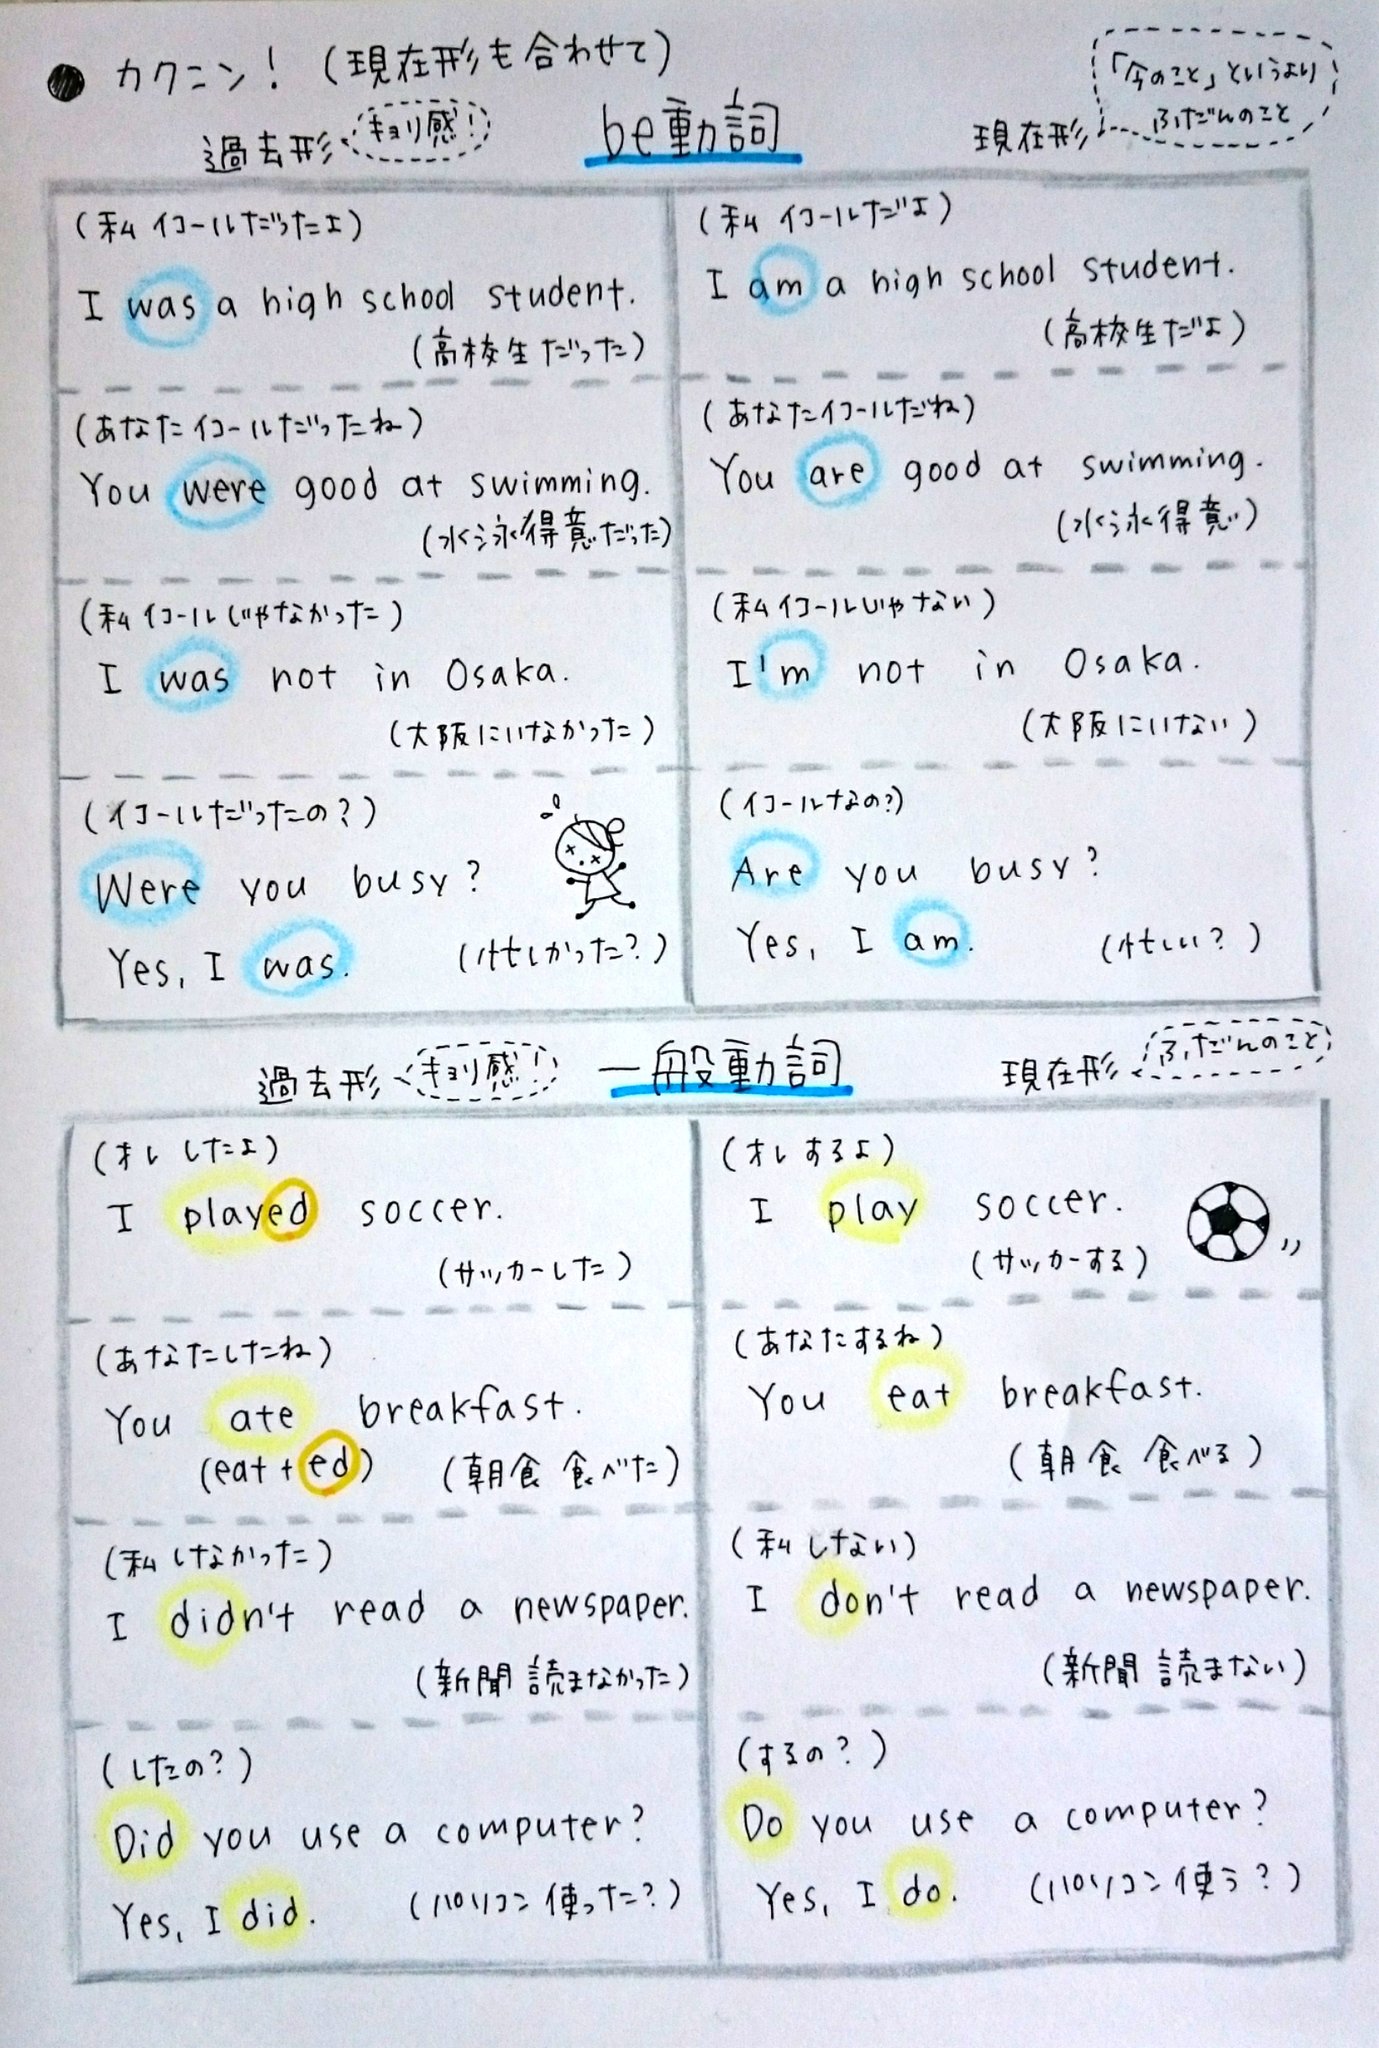 ● カクニン! (現在形も合わせて)
「今のこと」というより
ふだんのこと
過去形 キョリ感! be動詞 現在形
(私イコールだったよ)
I was a high school student.
(高校生だった)
(私イコールだよ)
I am a high school student.
(高校生だよ)
(あなたイコールだったね)
You were good at swimming.
(水泳得意だった)
(あなたイコールだね)
You are good at swimming.
(水泳得意)
(私イコールじゃなかった)
I was not in Osaka.
(大阪にいなかった)
(私イコールじゃない)
I'm not in Osaka.
(大阪にいない)
(イコールだったの?)
Were you busy?
Yes, I was. (忙しかった?)
(イコールなの?)
Are you busy?
Yes, I am. (忙しい?)
過去形 キョリ感! 一般動詞 現在形 ふだんのこと
(オレしたよ)
I played soccer.
(サッカーした)
(オレするよ)
I play soccer.
(サッカーする)
(あなたしたね)
You ate breakfast.
(eat + ed) (朝食食べた)
(あなたするね)
You eat breakfast.
(朝食食べる)
(私しなかった)
I didn't read a newspaper.
(新聞読まなかった)
(私しない)
I don't read a newspaper.
(新聞読まない)
(したの?)
Did you use a computer?
Yes, I did. (パソコン使った?)
(するの?)
Do you use a computer?
Yes, I do. (パソコン使う?)